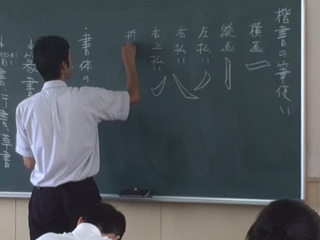 楷書の筆使い
横画
縦画
左払い
右払い
右上払い
折
書体の
楷書→行書、草書